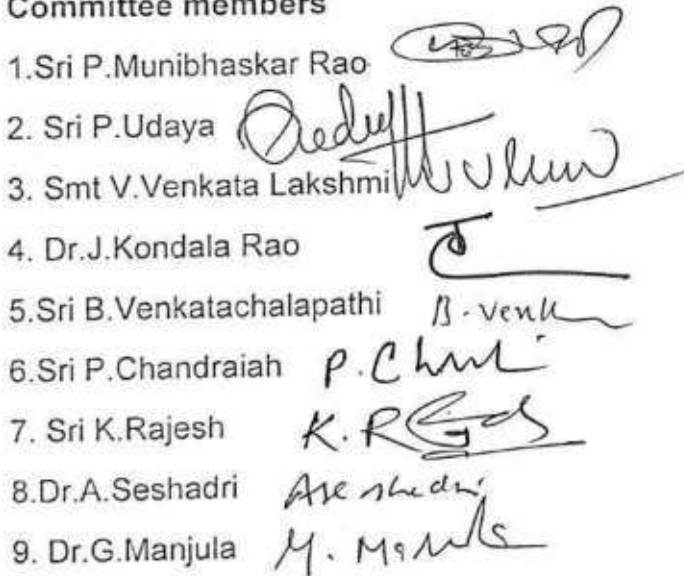 Committee members
1.Sri P.Munibhaskar Rao
2. Sri P.Udaya
3. Smt V.Venkata Lakshmi
4. Dr.J.Kondala Rao
5.Sri B.Venkatachalapathi B.venk
6.Sri P.Chandraiah P.Ch
7. Sri K.Rajesh K.R
8.Dr.A.Seshadri A
9. Dr.G.Manjula M.